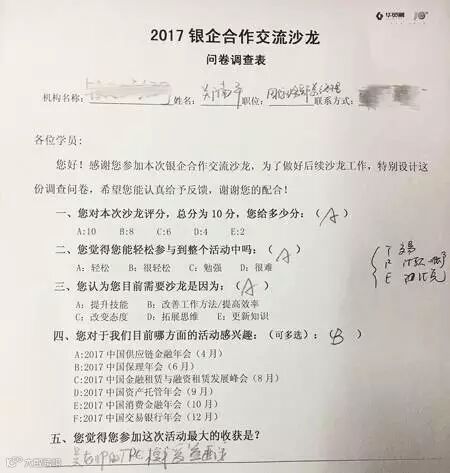 华贸融 10
2017 银企合作交流沙龙
问卷调查表
机构名称: 姓名: 职位: 联系方式:
各位学员:
您好！感谢您参加本次银企合作交流沙龙，为了做好后续沙龙工作，特别设计这
份调查问卷，希望您能认真给予反馈，谢谢您的配合！
一、您对本次沙龙评分，总分为 10 分，您给多少分：（ A ）
A:10 B:8 C:6 D:4 E:2
二、您觉得您能轻松参与到整个活动中吗：（ A ）
A: 轻松 B: 很轻松 C: 勉强 D: 很难
三、您认为您目前需要沙龙是因为：（ A ）
A: 提升技能 B: 改善工作方法/提高效率
C: 改变态度 D: 拓展思维 E: 更新知识
T 交易
E
四、您对于我们目前哪方面的活动感兴趣：（可多选）：（ B ）
A:2017 中国供应链金融年会（4 月）
B:2017 中国保理年会（6 月）
C:2017 中国金融租赁与融资租赁发展峰会（8 月）
D:2017 中国资产托管年会（9 月）
E:2017 中国消费金融年会（10 月）
F:2017 中国交易银行年会（12 月）
五、您觉得您参加这次活动最大的收获是？